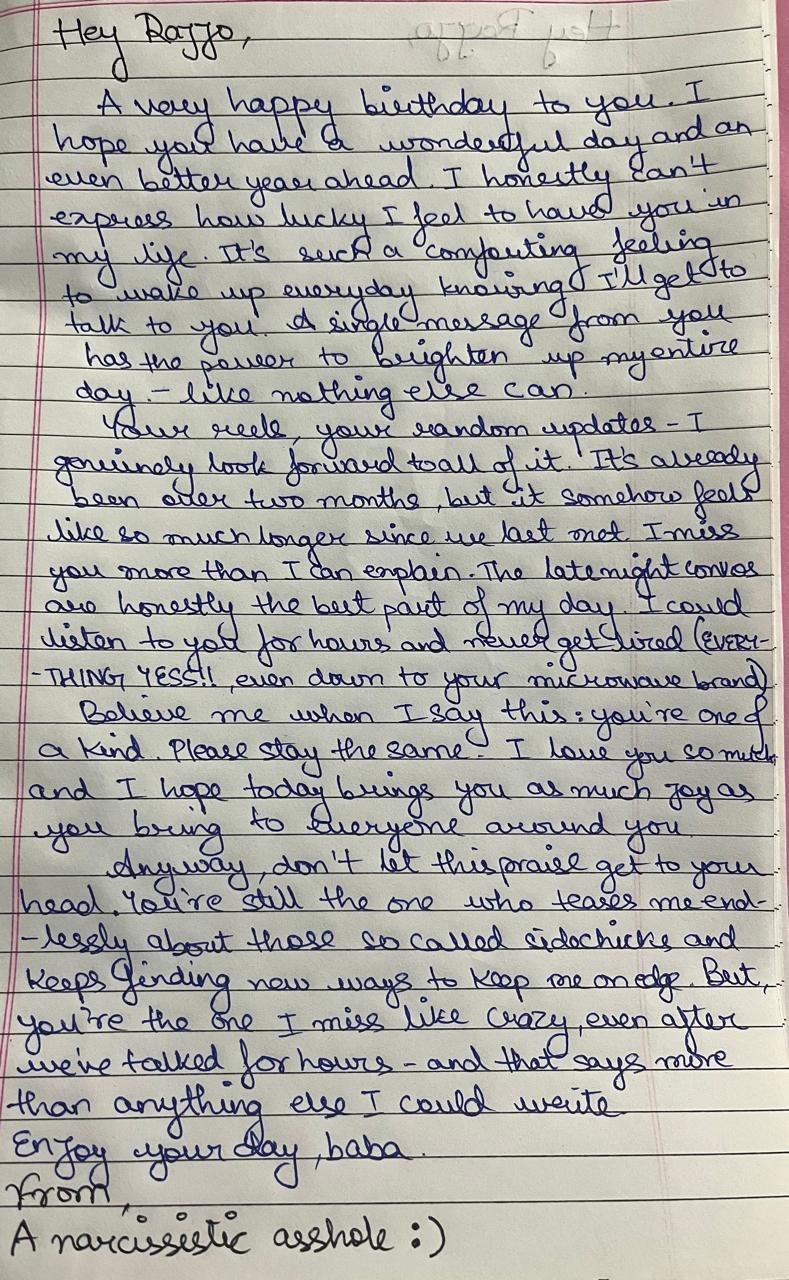 Hey Rajjo,
A very happy birthday to you. I
hope you have a wonderful day and an
even better year ahead. I honestly can't
express how lucky I feel to have you in
my life. It's such a comforting feeling
to wake up everyday knowing I'll get to
talk to you. A single message from you
has the power to brighten up my entire
day - like nothing else can.
Your reels, your random updates - I
genuinely look forward to all of it. It's already
been over two months, but it somehow feels
like so much longer since we last met. I miss
you more than I can explain. The late night convos
are honestly the best part of my day. I could
listen to you for hours and never get tired (EVERY-
-THING YESS!!, even down to your microwave brand)
Believe me when I say this: you're one of
a kind. Please stay the same. I love you so much
and I hope today brings you as much joy as
you bring to everyone around you.
Anyway, don't let this praise get to your
head. You're still the one who teases me end-
-lessly about those so called sidechicks and
keeps finding new ways to keep me on edge. But,
you're the one I miss like crazy, even after
we've talked for hours - and that says more
than anything else I could write
Enjoy your day, baba.
From,
A narcissistic asshole :)